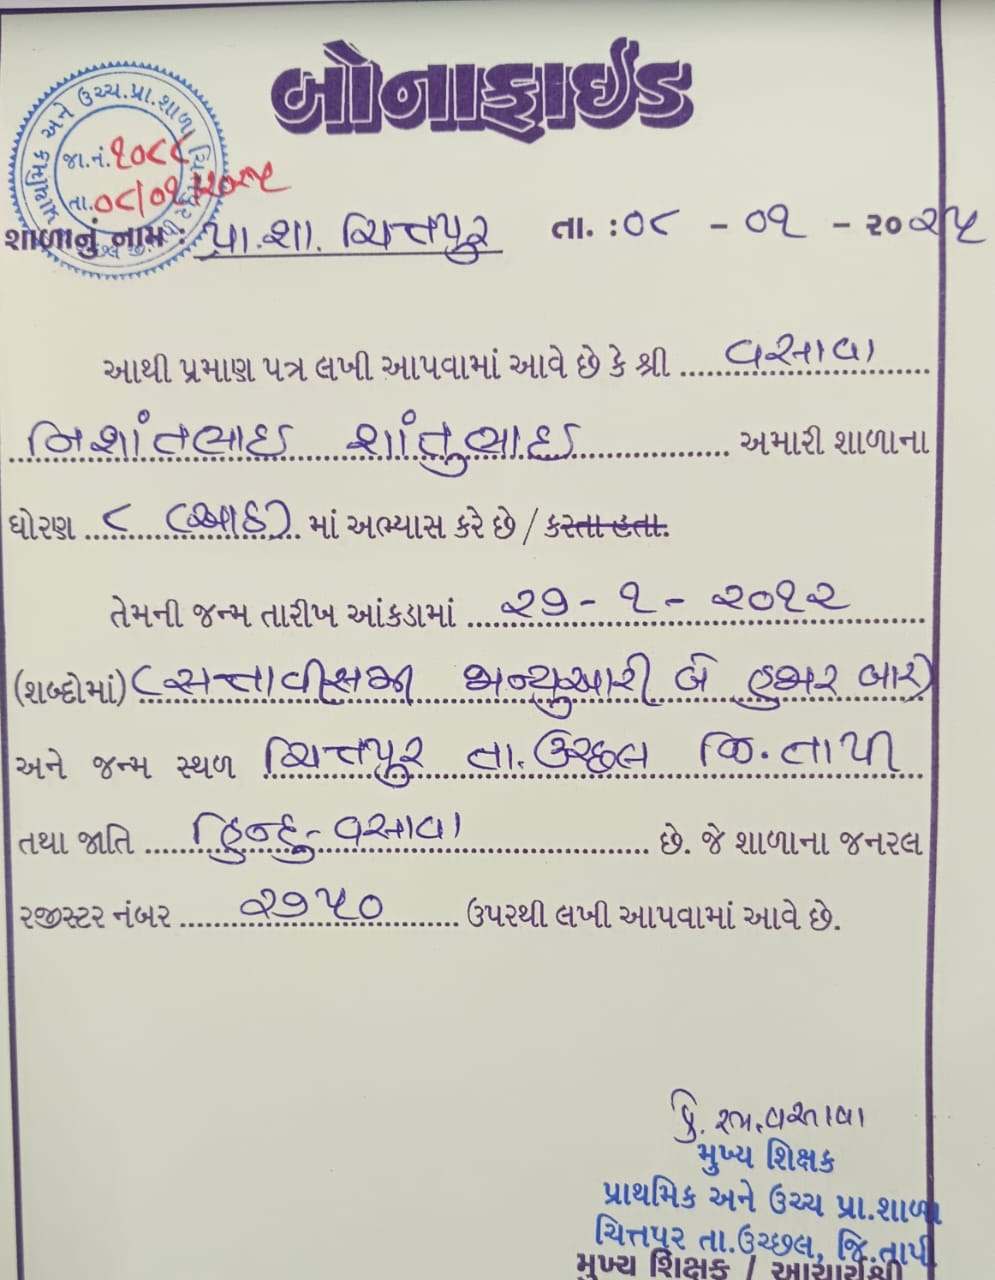 બોનાફાઈડ
પ્રાથમિક અને ઉચ્ચ.પ્રા.શાળા
જા.નં. ૧૦૮૮
તા. ૦૮/૦૧/૨૦૨૫
શાળાનું નામ : પ્રા.શા. ચિત્તપુર તા. : ૦૮ - ૦૧ - ૨૦૨૫
આથી પ્રમાણ પત્ર લખી આપવામાં આવે છે કે શ્રી વસાવા
નિશાંતભાઇ શાંતુભાઇ અમારી શાળાના
ધોરણ ૮ (આઠ) માં અભ્યાસ કરે છે / કરતા હતા.
તેમની જન્મ તારીખ આંકડામાં ૨૭ - ૧ - ૨૦૧૨
(શબ્દોમાં) (સત્તાવીસમી જાન્યુઆરી બે હજાર બાર)
અને જન્મ સ્થળ ચિત્તપુર તા. ઉચ્છલ જિ. તાપી
તથા જાતિ હિન્દુ - વસાવા છે. જે શાળાના જનરલ
રજીસ્ટર નંબર ૨૭૫૦ ઉપરથી લખી આપવામાં આવે છે.
વસાવા
મુખ્ય શિક્ષક
પ્રાથમિક અને ઉચ્ચ પ્રા.શાળા
ચિત્તપુર તા.ઉચ્છલ, જિ.તાપી
મુખ્ય શિક્ષક / આચાર્યશ્રી